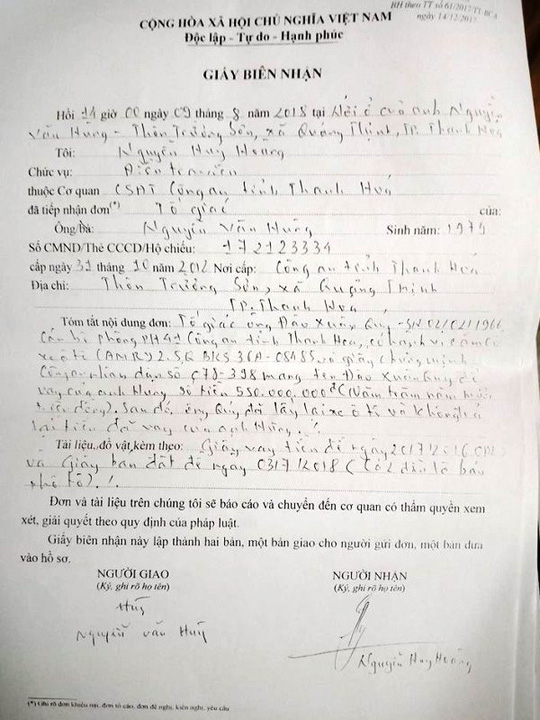 BH theo TT số 61/2017/TT-BCA
ngày 14/12/2017
CỘNG HÒA XÃ HỘI CHỦ NGHĨA VIỆT NAM
Độc lập - Tự do - Hạnh phúc
GIẤY BIÊN NHẬN
Hồi 14 giờ 00 ngày 09 tháng 8 năm 2018 tại Nơi ở của anh Nguyễn
Văn Hùng - Thôn Trường Sơn, xã Quảng Thịnh, TP. Thanh Hoá
Tôi: Nguyễn Huy Hoàng
Chức vụ: Điều tra viên
thuộc Cơ quan CSĐT Công an tỉnh Thanh Hoá
đã tiếp nhận đơn(*) Tố giác của:
Ông/Bà: Nguyễn Văn Hùng Sinh năm: 1979
Số CMND/Thẻ CCCD/Hộ chiếu: 172123334
cấp ngày 31 tháng 10 năm 2012 Nơi cấp: Công an tỉnh Thanh Hoá
Địa chỉ: Thôn Trường Sơn, xã Quảng Thịnh
TP. Thanh Hoá
Tóm tắt nội dung đơn: Tố giác ông Đào Xuân Quy - SN 02/02/1966
Cán bộ phòng PH41 Công an tỉnh Thanh Hoá, có hành vi cầm cố
xe ô tô CAMRY 2.5Q BKS 36A - 08485 và giấy chứng minh
Công an nhân dân số 079-398 mang tên Đào Xuân Quy để
vay của anh Hùng số tiền 550.000.000đ (Năm trăm năm mươi
triệu đồng). Sau đó, ông Quy đã lấy lại xe ô tô và không trả
lại tiền đã vay của anh Hùng./.
Tài liệu, đồ vật kèm theo: Giấy vay tiền đề ngày 20/7/2016
và Giấy bán đất đề ngày 03/7/2018
Đơn và tài liệu trên chúng tôi sẽ báo cáo và chuyển đến cơ quan có thẩm quyền xem
xét, giải quyết theo quy định của pháp luật.
Giấy biên nhận này lập thành hai bản, một bản giao cho người gửi đơn, một bản đưa
vào hồ sơ.
NGƯỜI GIAO NGƯỜI NHẬN
(Ký, ghi rõ họ tên) (Ký, ghi rõ họ tên)
Hùng
Nguyễn Văn Hùng
Nguyễn Huy Hoàng
(*) Ghi rõ đơn khiếu nại, đơn tố cáo, đơn đề nghị, kiến nghị, yêu cầu